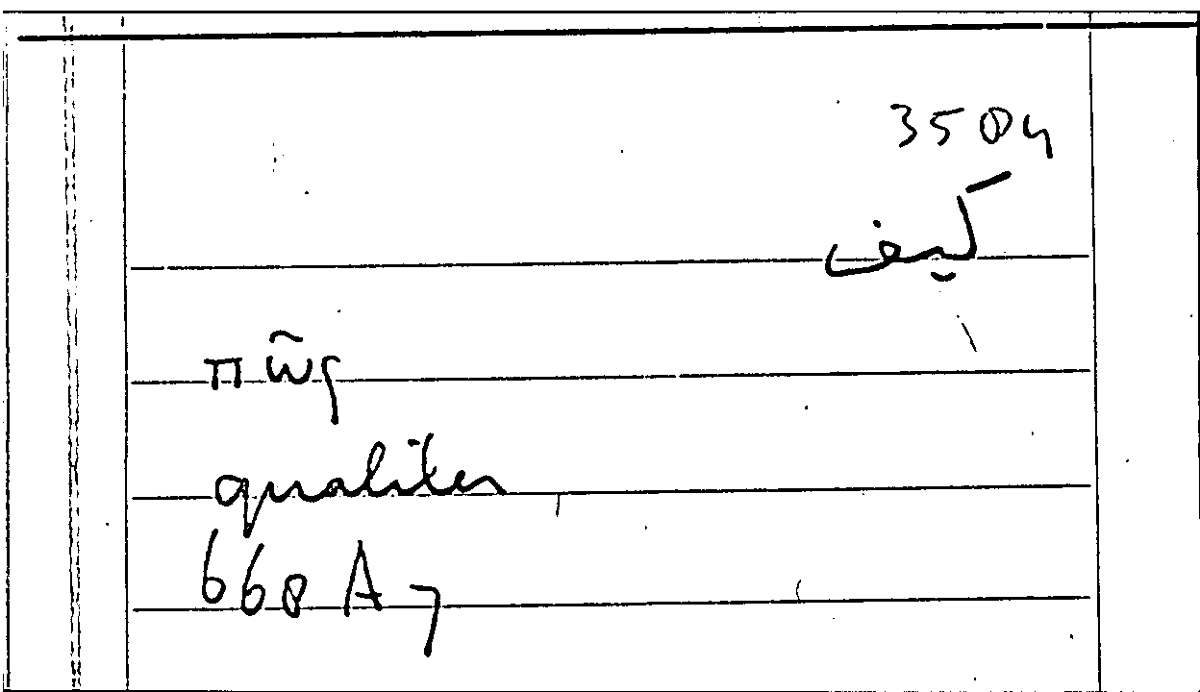 350 4
كيف
πῶς
qualiter
668 A 7